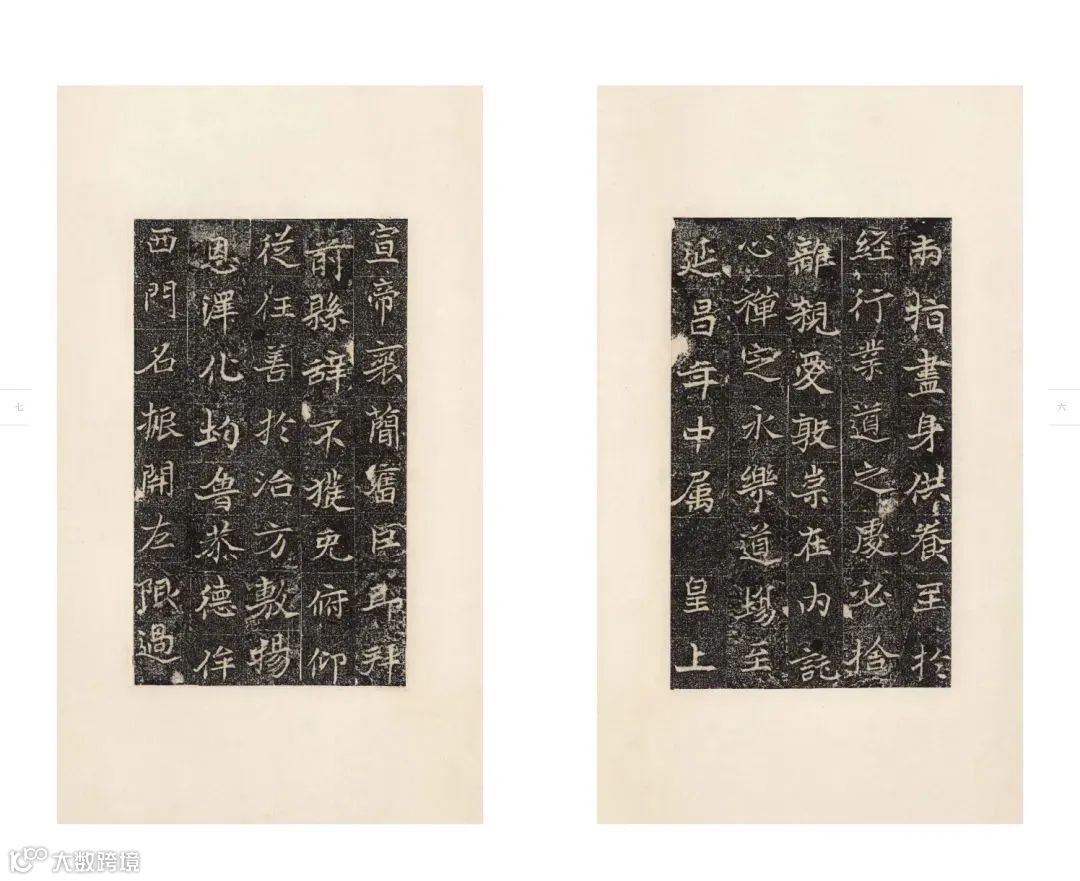 兩指盡身供養至於
經行業道之處必捨
離親愛敦崇在內託
心禪定永樂道場至
延昌年中属皇上
六
宣帝衷簡舊臣即拜
前縣辞不獲免俯仰
從任善於治方敷揚
恩澤化均魯恭德侔
西門名振關左限過
七
大数跨境